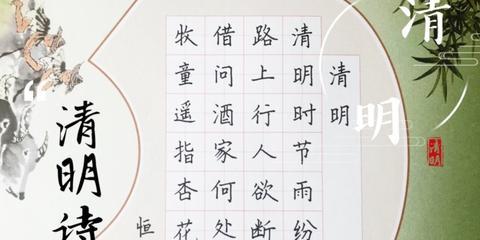 清明
清明
清明
清明时节雨纷
路上行人欲断
借问酒家何处
牧童遥指杏花
恒
清明诗